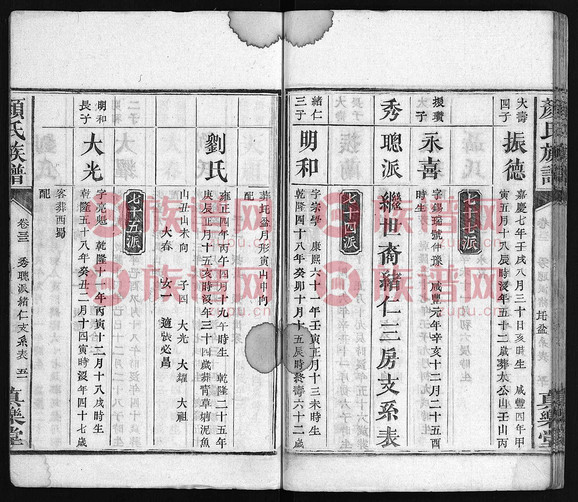 顏氏族譜
真樂堂
大濤四子
振德
嘉慶七年壬戌八月三十日亥時生 咸豐四年甲
寅五月十八辰時沒年五十二歲葬太公山壬山丙
七十七派
永喜
字錦瑞號伊豫 咸豐元年辛亥十二月二十五酉
時生
秀聰派
繼世裔緒仁三房支系表
七十四派
緒仁三子
明和
字宗學 康熙六十一年壬寅正月十三未時生
乾隆四十八年癸卯十月十五辰時終壽六十二歲
葬
月形寅山申向
配
劉氏
雍正四年丙午四月十九午時生 乾隆二十五年
庚辰正月十五亥時沒年三十四歲葬
山丑山未向 子四 大光 大燿 大祖
大春 女一 適
七十五派
明和長子
大光
字亮彪 乾隆十一年丙寅十二月十八戌時生
乾隆五十八年癸丑二月十四寅時沒年四十七歲
客葬西蜀
配
顏氏族譜
卷三
秀聰派緒仁支系表
五一
真樂堂
族谱网